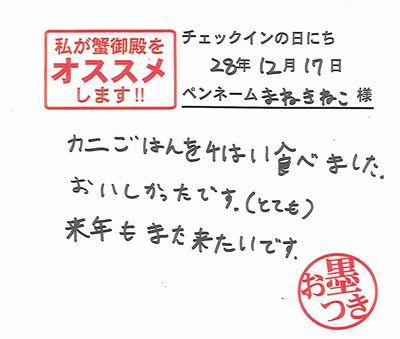 私が蟹御殿を
オススメ
します!!
チェックインの日にち
28年12月17日
ペンネームまねきねこ様
カニごはんを4はい食べました。
おいしかったです。(とても)
来年もまた来たいです。
お墨つき